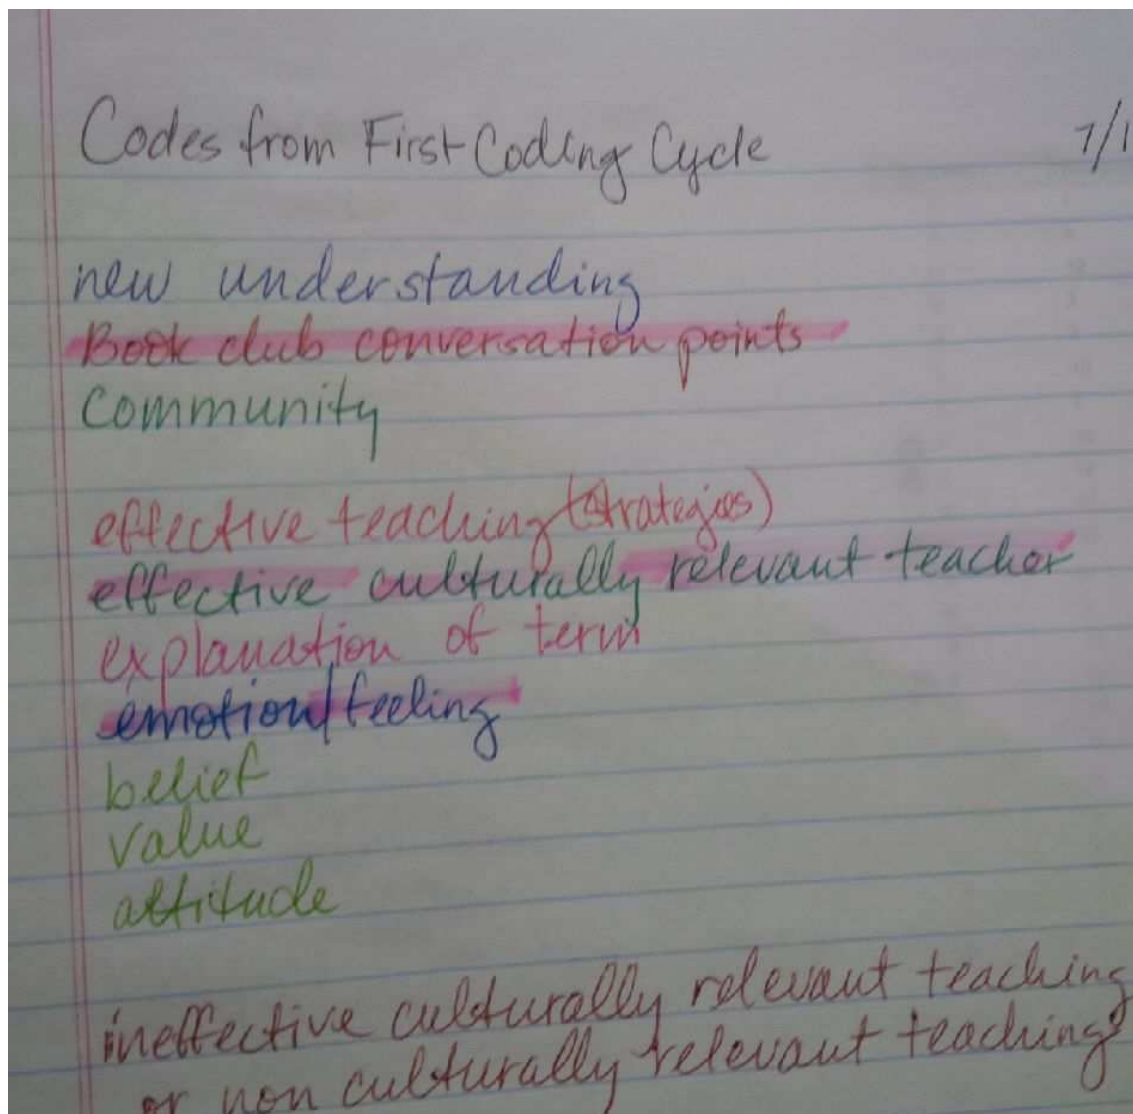 Codes from First Coding Cycle 7/1
new understanding
Book club conversation points
Community
effective teaching (strategies)
effective culturally relevant teacher
explanation of term
emotion/feeling
belief
value
attitude
ineffective culturally relevant teaching
or non culturally relevant teaching?